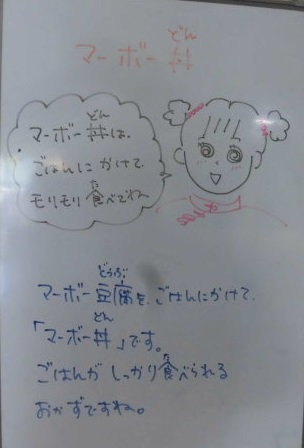 マーボー丼
どん
マーボー丼は、
どん
ごはんにかけて
モリモリ食べてね
た
マーボー豆腐を、ごはんにかけて、
どうふ
「マーボー丼」です。
どん
ごはんが しっかり食べられる
た
おかずですね。